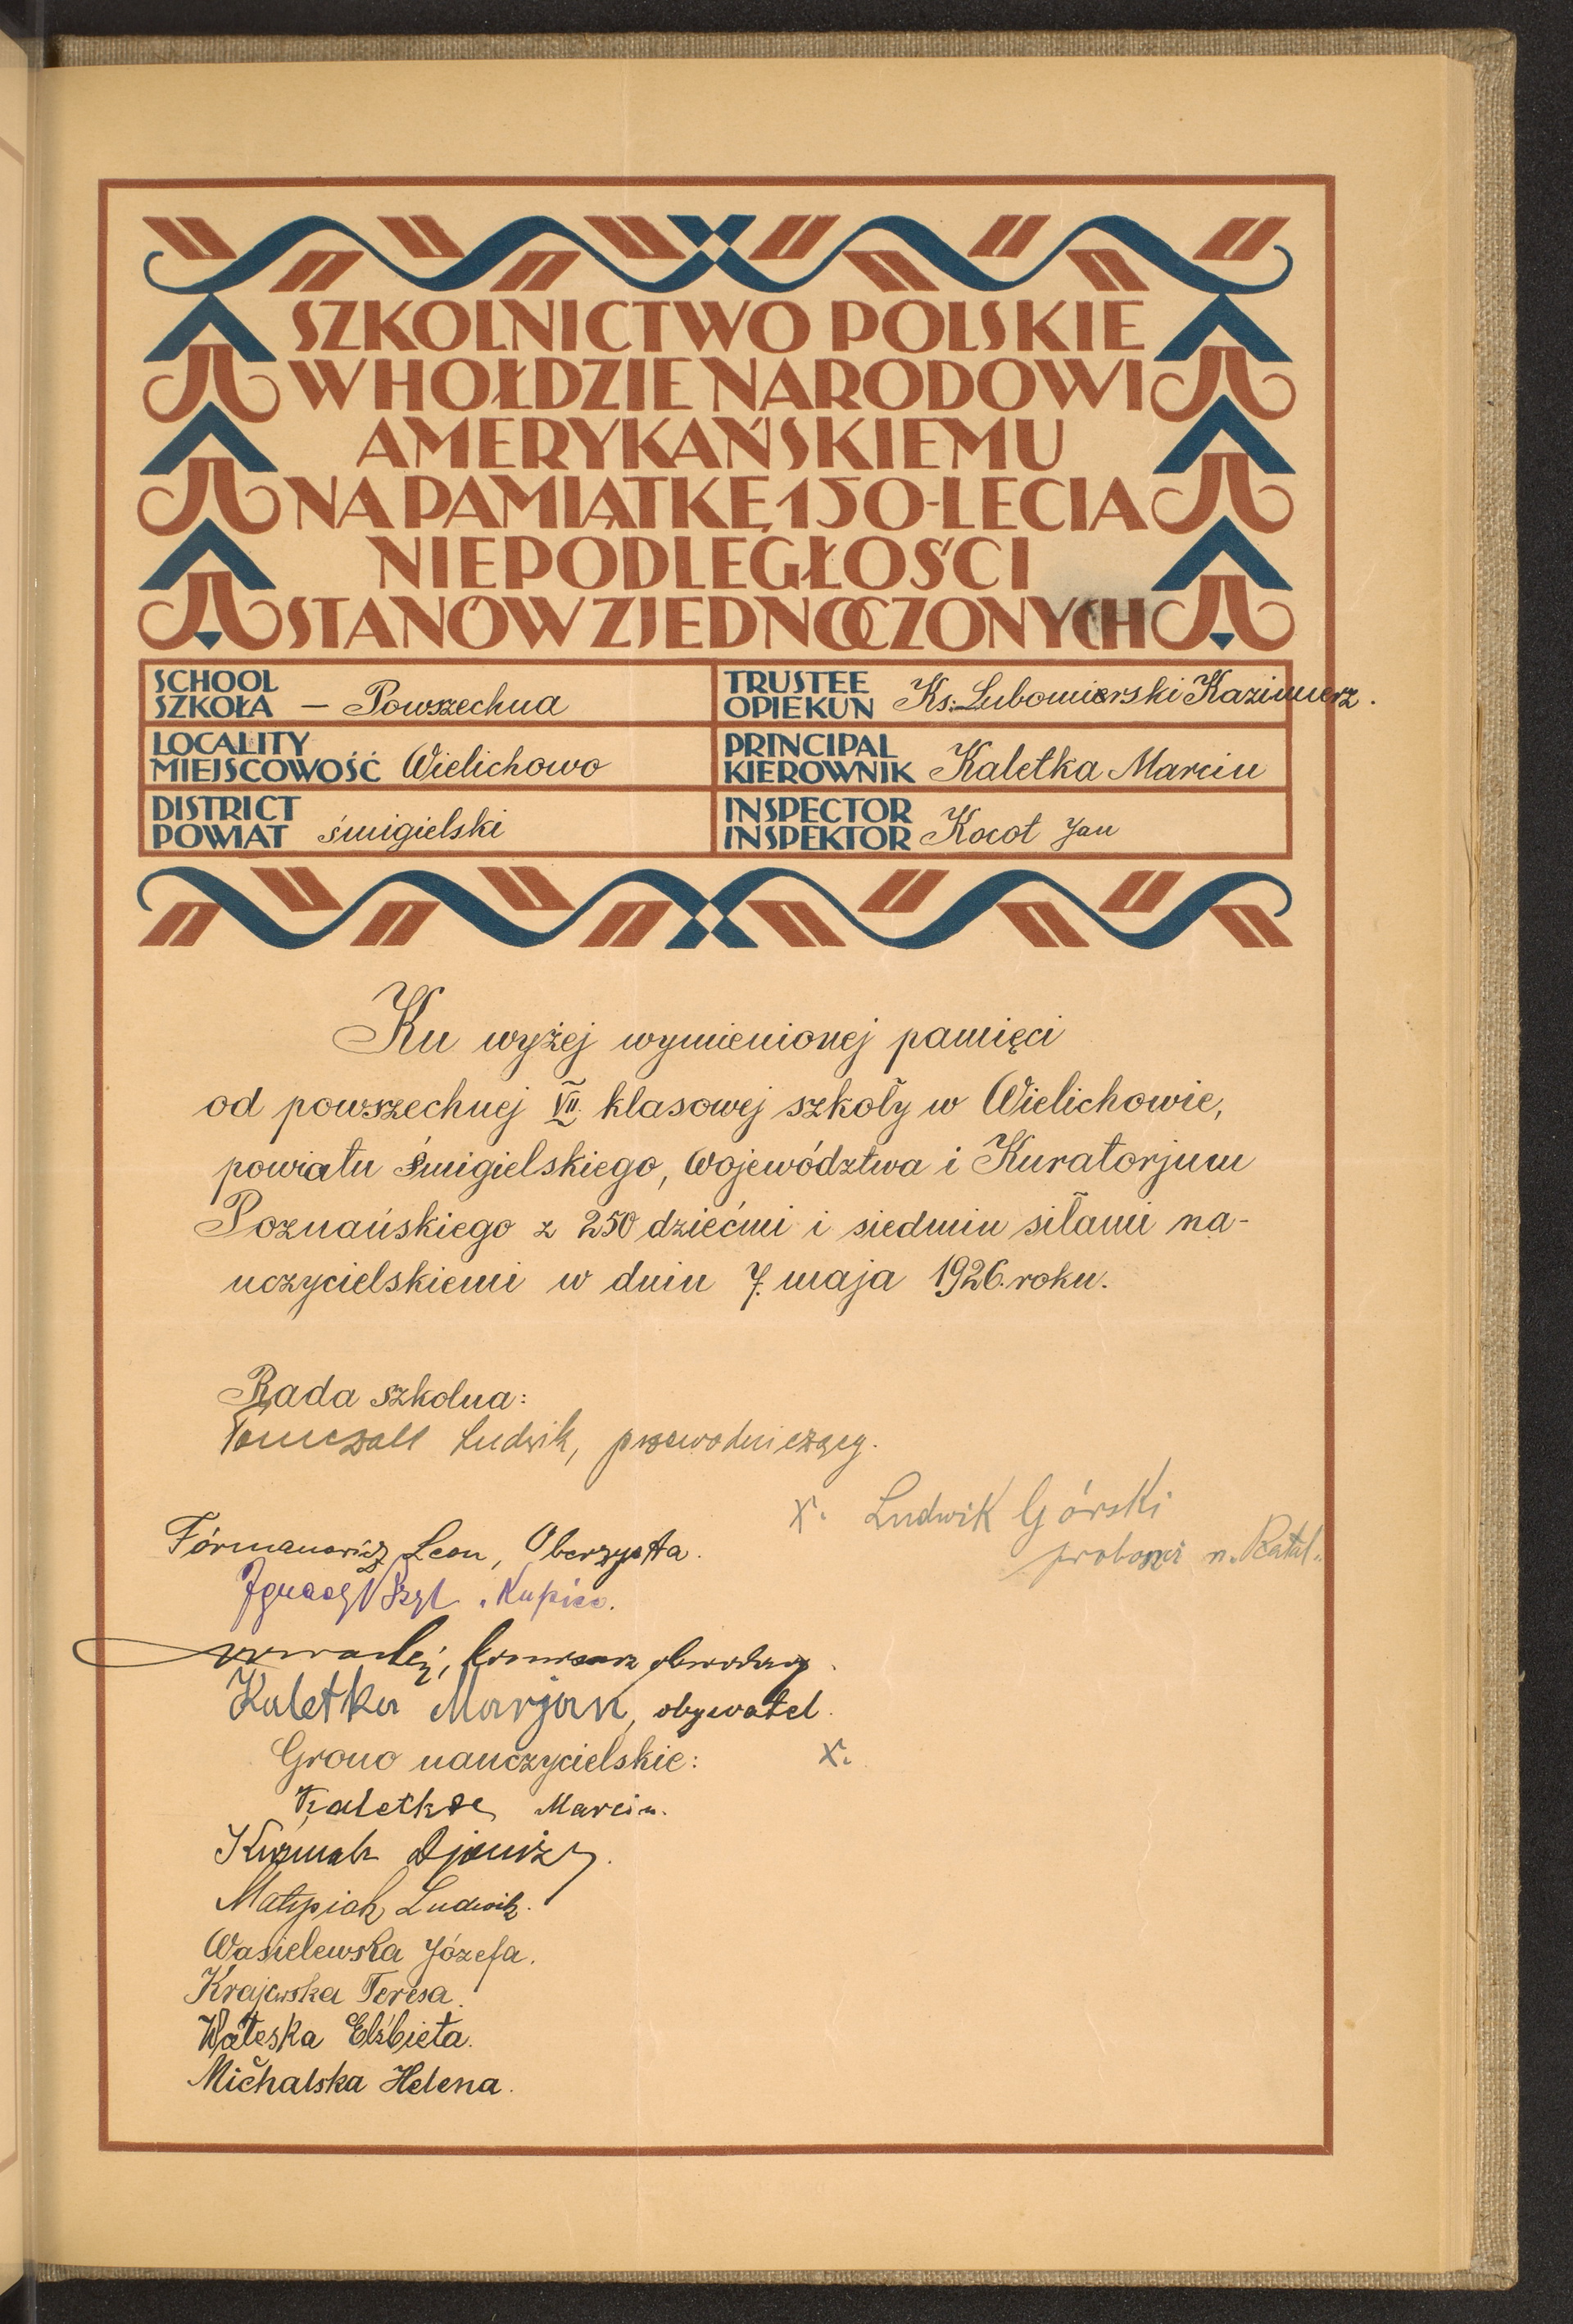 SZKOLNICTWO POLSKIE
W HOŁDZIE NARODOWI
AMERYKAŃSKIEMU
NA PAMIĄTKĘ 150-LECIA
NIEPODLEGŁOŚCI
STANÓW ZJEDNOCZONYCH
SCHOOL
SZKOŁA – Powszechna
TRUSTEE
OPIEKUN Ks. Lubomierski Kazimierz.
LOCALITY
MIEJSCOWOŚĆ Wielichowo
PRINCIPAL
KIEROWNIK Kaletka Marcin
DISTRICT
POWIAT śmigielski
INSPECTOR
INSPEKTOR Kocot Jan
Ku wyżej wymienionej pamięci
od powszechnej VII. klasowej szkoły w Wielichowie,
powiatu Śmigielskiego, Województwa i Kuratorjum
Poznańskiego z 250 dziećmi i siedmiu siłami na-
uczycielskiemi w dniu 7. maja 1926. roku.
Rada szkolna:
Ludwik, przewodniczący.
X. Ludwik Górski
proboszcz
Leon, Oberzysta.
Ignacy Kupiec.
komisarz obwodowy.
Kaletka Marjan, obywatel.
Grono nauczycielskie: X.
Kaletka Marcin.
Matysiak Ludwik.
Wasielewska Józefa.
Krajewska Teresa.
Elżbieta.
Michalska Helena.